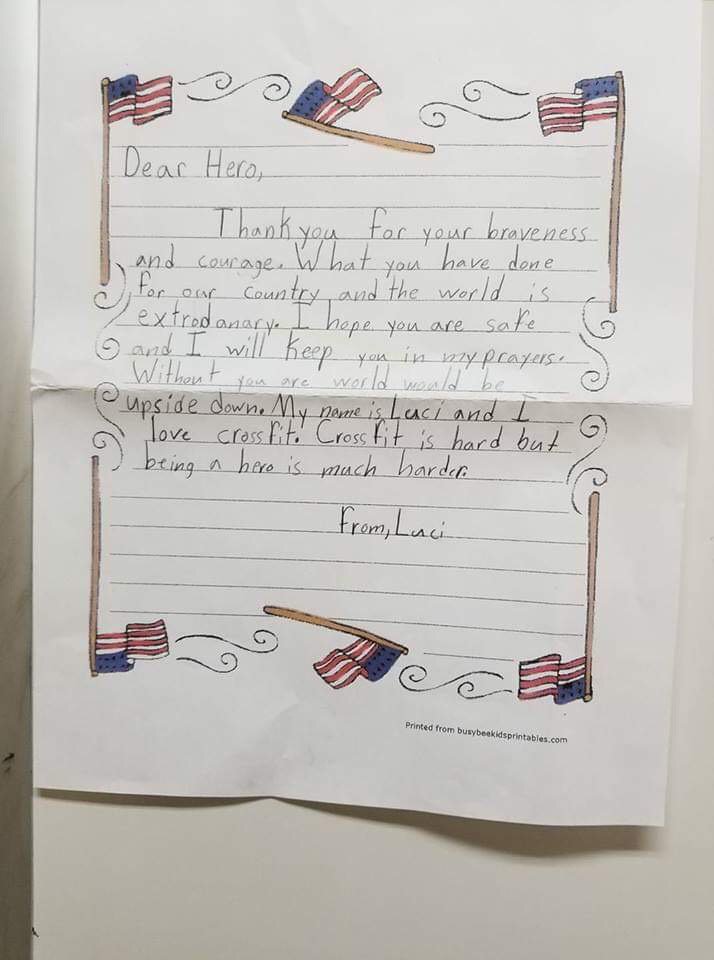 Dear Hero,
Thank you for your braveness
and courage. What you have done
for our country and the world is
extrodanary. I hope you are safe
and I will keep you in my prayers.
Without you are world would be
upside down. My name is Luci and I
love crossfit. Crossfit is hard but
being a hero is much harder.
From, Luci
Printed from busybeekidsprintables.com